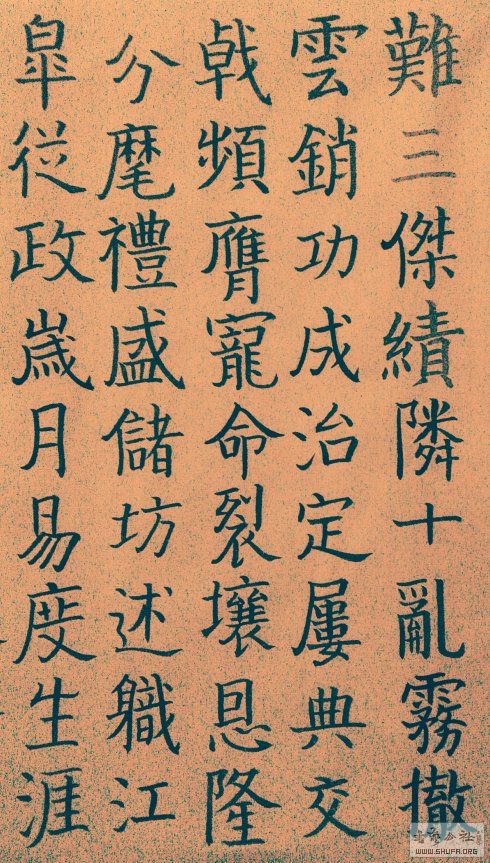 難三傑績隣十亂霧撤
雲銷功成治定屢典交
戟頻膺寵命裂壤恩隆
分麾禮盛儲坊述職江
皐従政歳月易度生涯
WWW.SHUFA.ORG